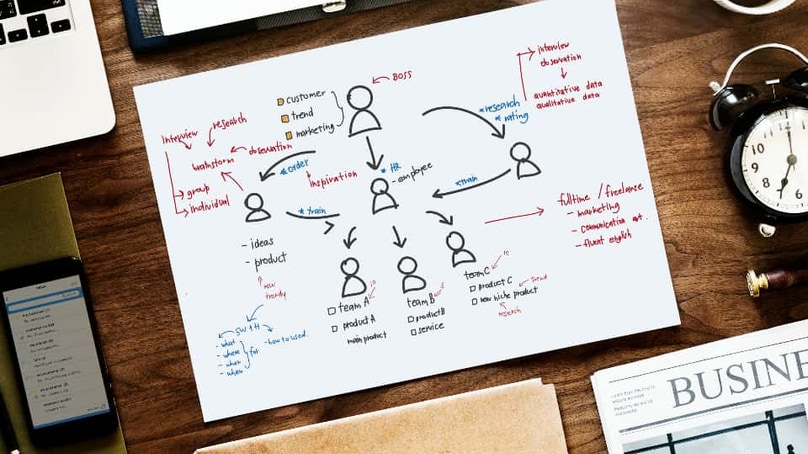 BOSS
customer
trend
marketing
interview
observation
quantitative data
qualitative data
*research
*rating
interview
research
brainstorm
observation
group
individual
*order
inspiration
*HR
- employee
*train
*train
- ideas
- product
new
trendy
fulltime / freelance
- marketing
- communication
- fluent english
team A
10
product A
main product
team B
5
product B
service
team C
10
product C
new niche product
trend
research
5W1H
- what
- where
- when
for
- how to used
12
BUSINE